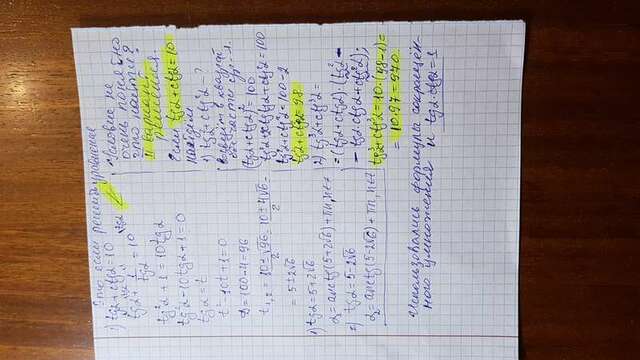 Это если решить уравнение
1) tgα + ctgα = 10
tgα + 1/tgα = 10
tg²α + 1 = 10tgα
tg²α - 10tgα + 1 = 0
tgα = t
t² - 10t + 1 = 0
D = 100 - 4 = 96
t₁,₂ = (10 ± √96)/2 = (10 ± 4√6)/2 =
= 5 ± 2√6
1) tgα = 5 + 2√6
α₁ = arctg(5+2√6) + πn, n∈Z
2) tgα = 5 - 2√6
α₂ = arctg(5-2√6) + πn, n∈Z
Условие не
очень понятно
что найти?
II вариант
решения.
Если tgα + ctgα = 10
найдем
1) tg²α + ctg²α - ?
Возведём в квадрат
обе части
(tgα + ctgα)² = 100
tg²α + 2tgα ctgα + ctg²α = 100
tg²α + ctg²α = 100 - 2
tg²α + ctg²α = 98
2) tg³α + ctg³α =
= (tgα + ctgα)·(tg²α -
- tgα·ctgα + ctg²α);
tg³α + ctg³α = 10·(98-1) =
= 10·97 = 970
Использовались формулы сокращен-
ного умножения и tgα·ctgα = 1